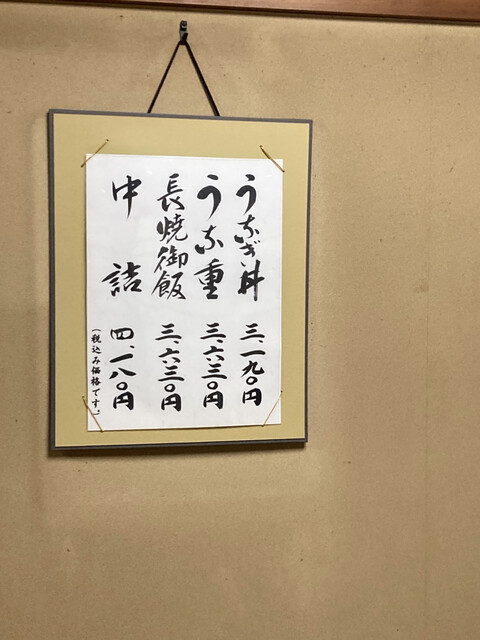 うなぎ丼 三、一九〇円
うな重 三、六三〇円
長焼御飯 三、六三〇円
中詰 四、一八〇円
(税込み価格です。)